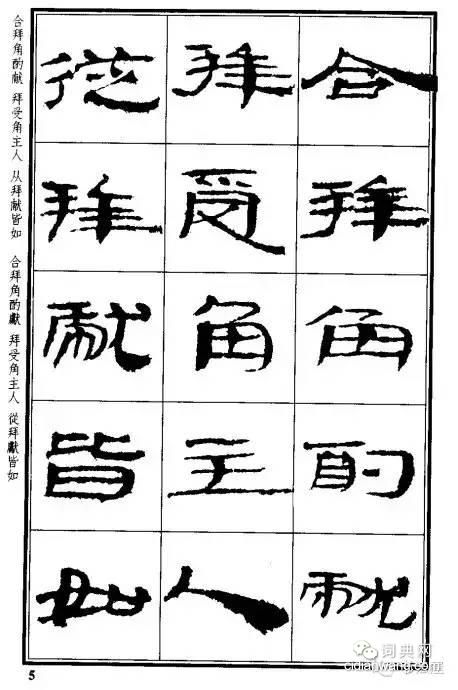 合拜角酌献
拜受角主人
從拜献皆如
合拜角酌献 拜受角主人 从拜献皆如 合拜角酌獻 拜受角主人 從拜獻皆如
5
词典网
cidianwang.com